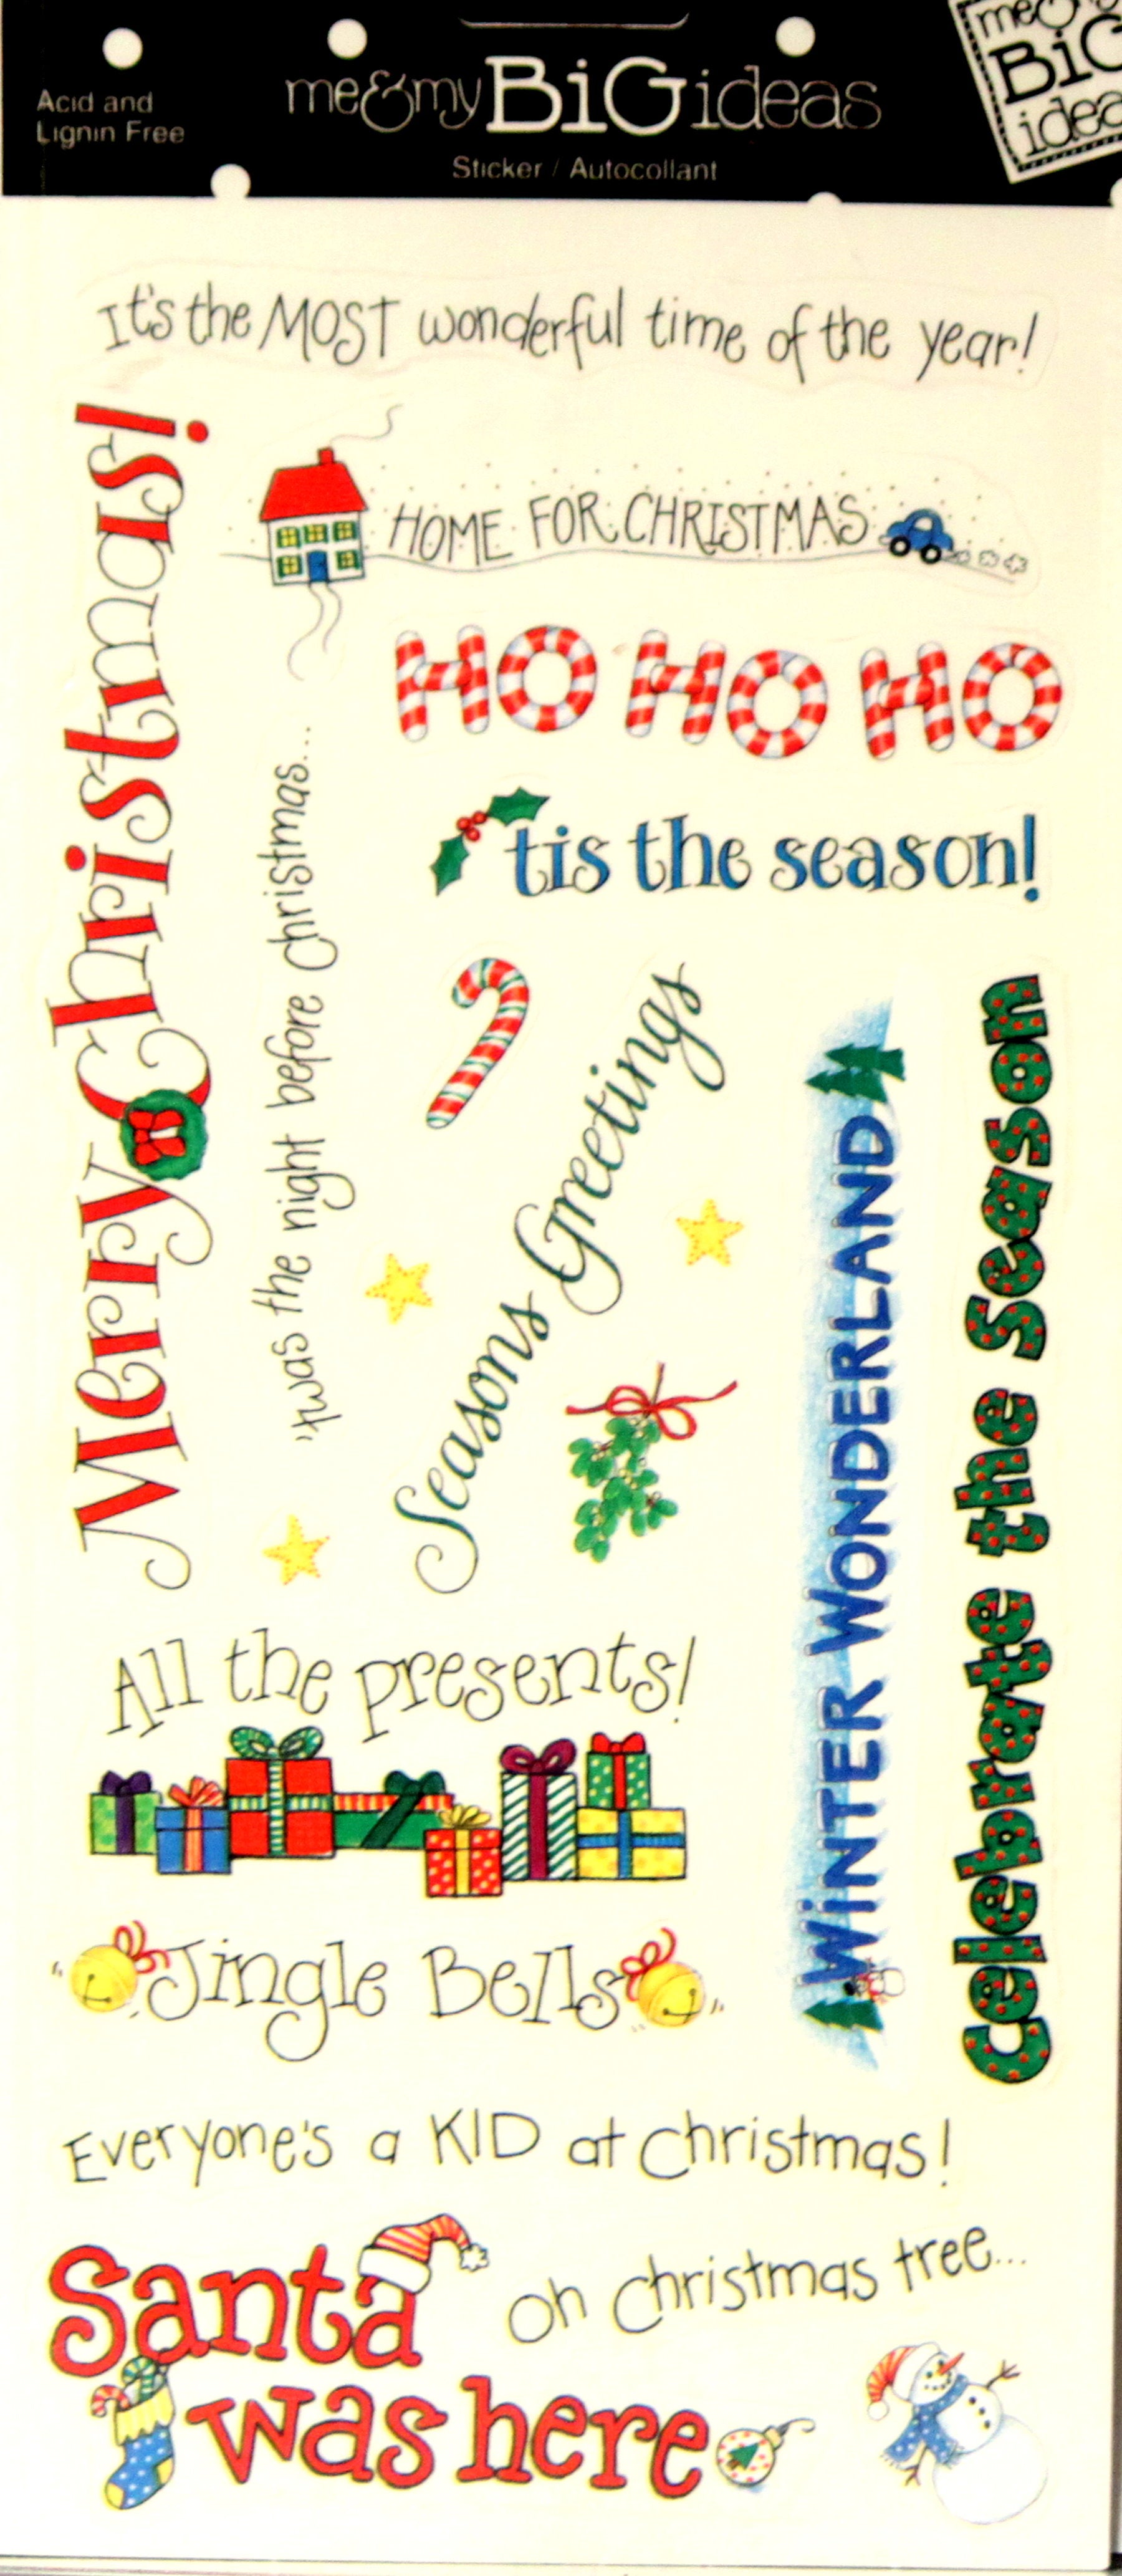 Acid and
Lignin Free
me&my BiG ideas
Sticker / Autocollant
me&my
BiG
ideas
It's the MOST wonderful time of the year!
Merry Christmas!
HOME FOR CHRISTMAS
HO HO HO
'twas the night before Christmas...
'tis the season!
Seasons Greetings
WiNTER WONDERLAND
Celebrate the Season
All the presents!
Jingle Bells
Everyone's a KID at Christmas!
Santa
was here
oh Christmas tree...